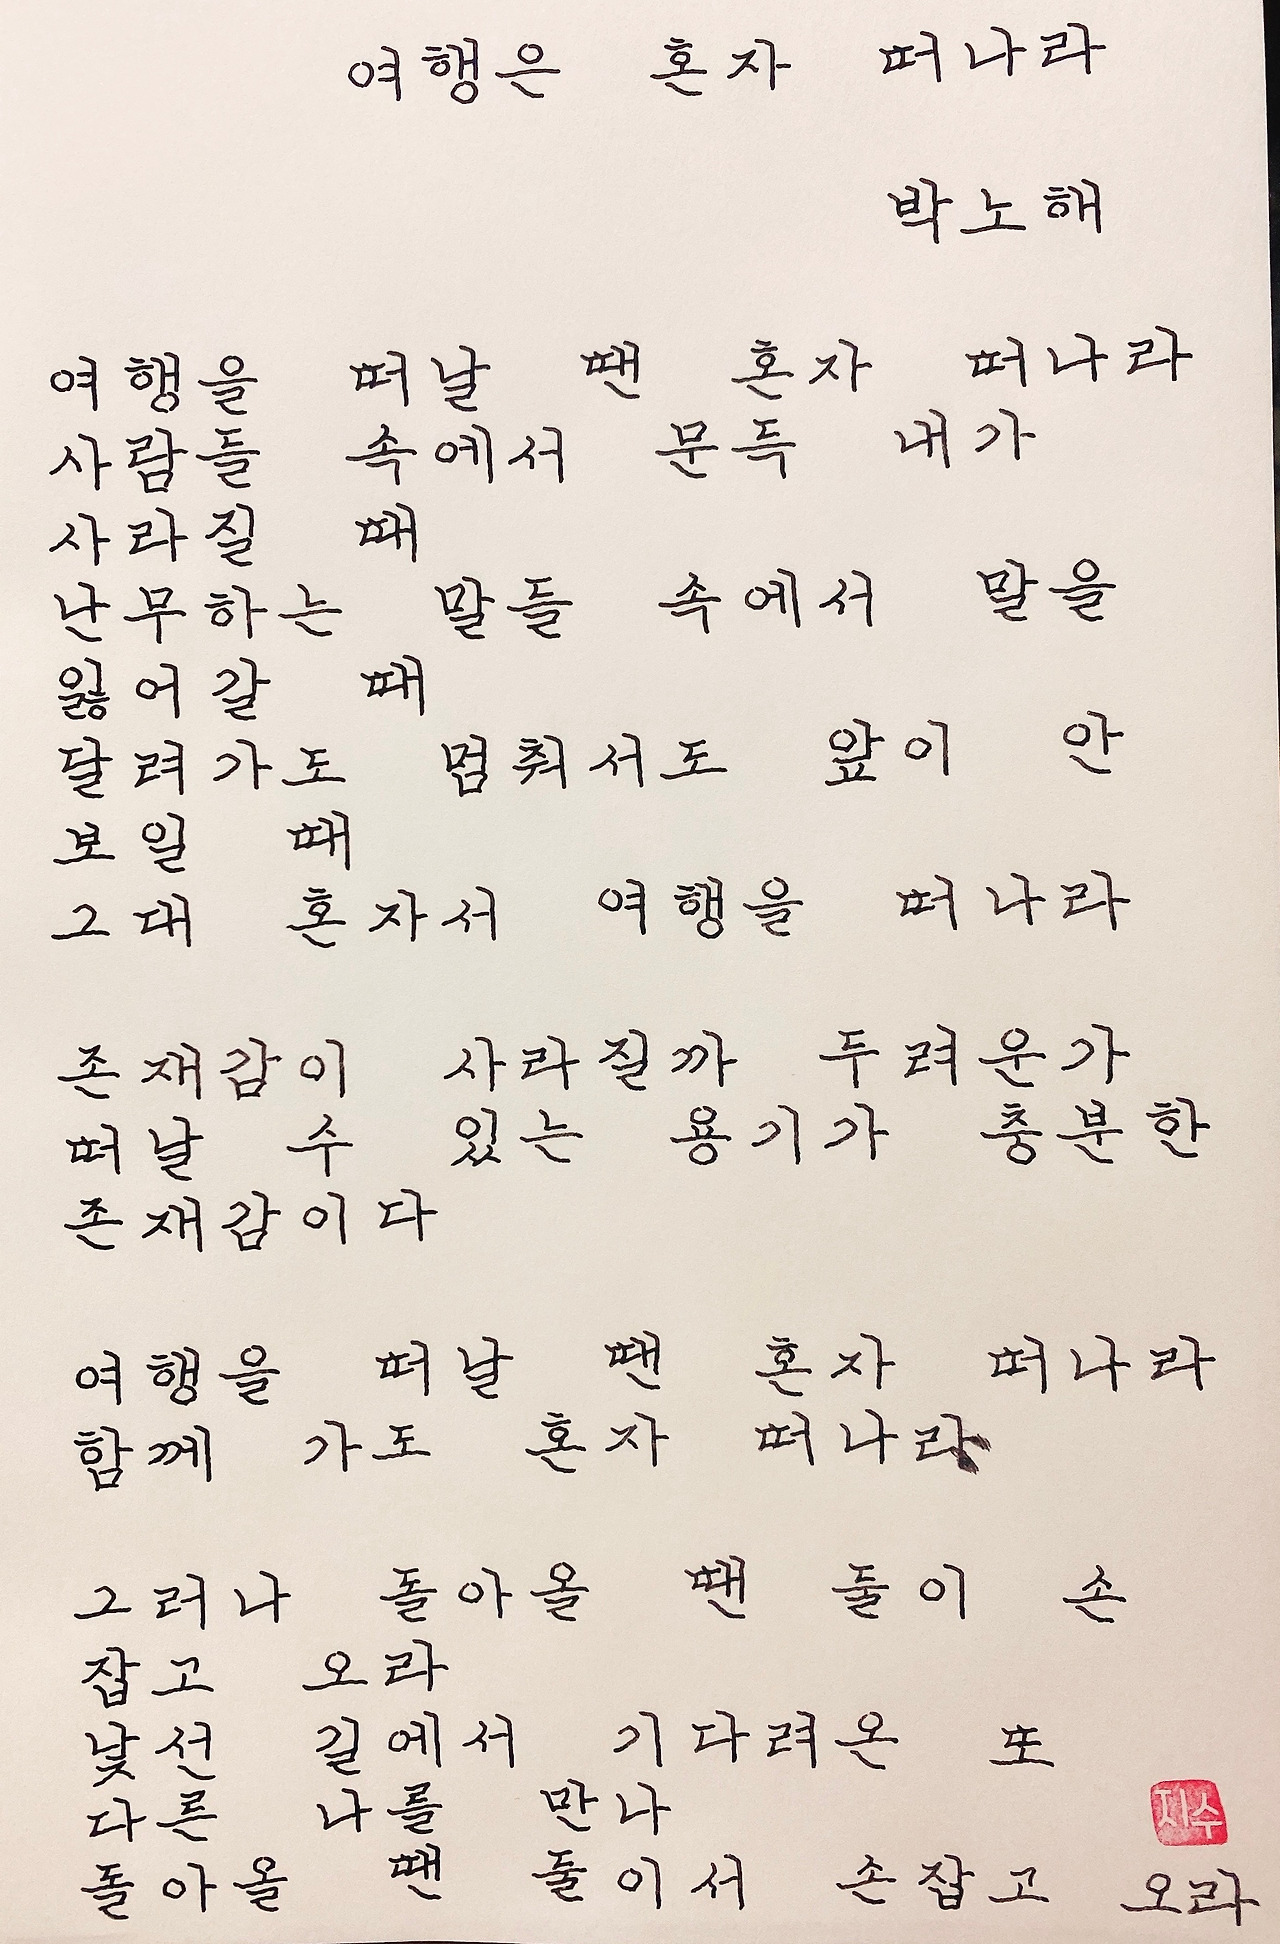 여행은 혼자 떠나라
박노해
여행을 떠날 땐 혼자 떠나라
사람들 속에서 문득 내가
사라질 때
난무하는 말들 속에서 말을
잃어갈 때
달려가도 멈춰서도 앞이 안
보일 때
그대 혼자서 여행을 떠나라
존재감이 사라질까 두려운가
떠날 수 있는 용기가 충분한
존재감이다
여행을 떠날 땐 혼자 떠나라
함께 가도 혼자 떠나라
그러나 돌아올 땐 둘이 손
잡고 오라
낯선 길에서 기다려온 또
다른 나를 만나
돌아올 땐 둘이서 손잡고 오라
지수